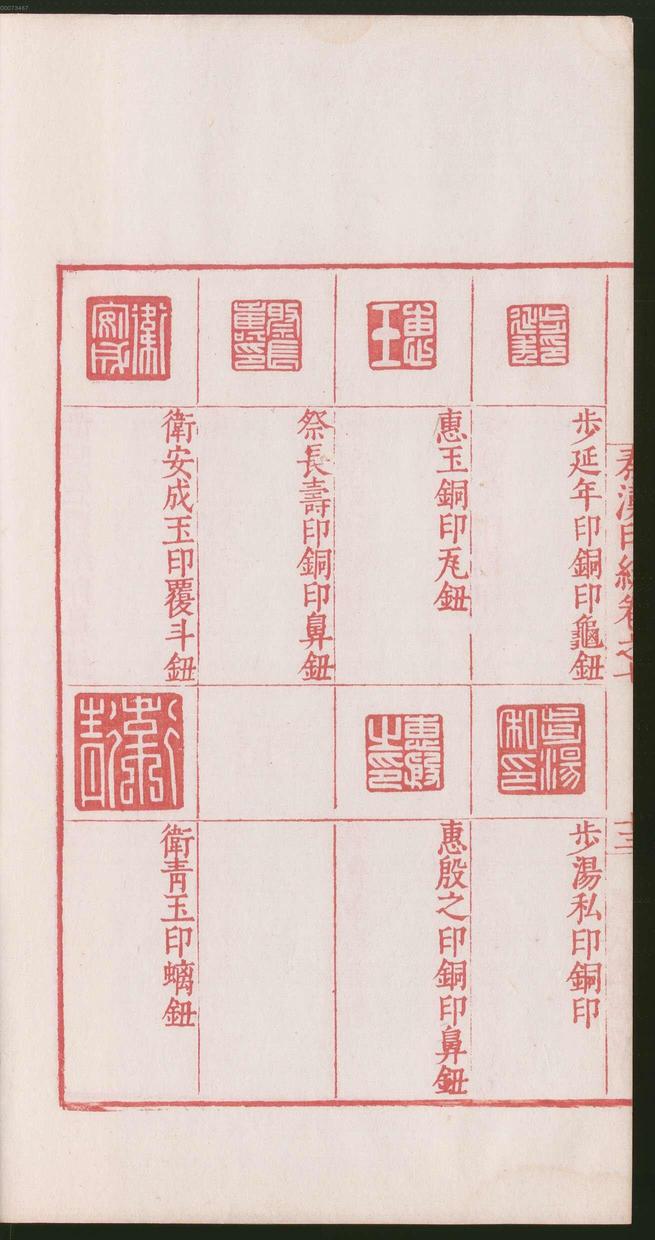 00073467
秦漢印統卷之七
十三
步延年印銅印龜鈕
步湯私印銅印
惠玉銅印瓦鈕
惠殷之印銅印鼻鈕
祭長壽印銅印鼻鈕
衛安成玉印覆斗鈕
衛青玉印螭鈕